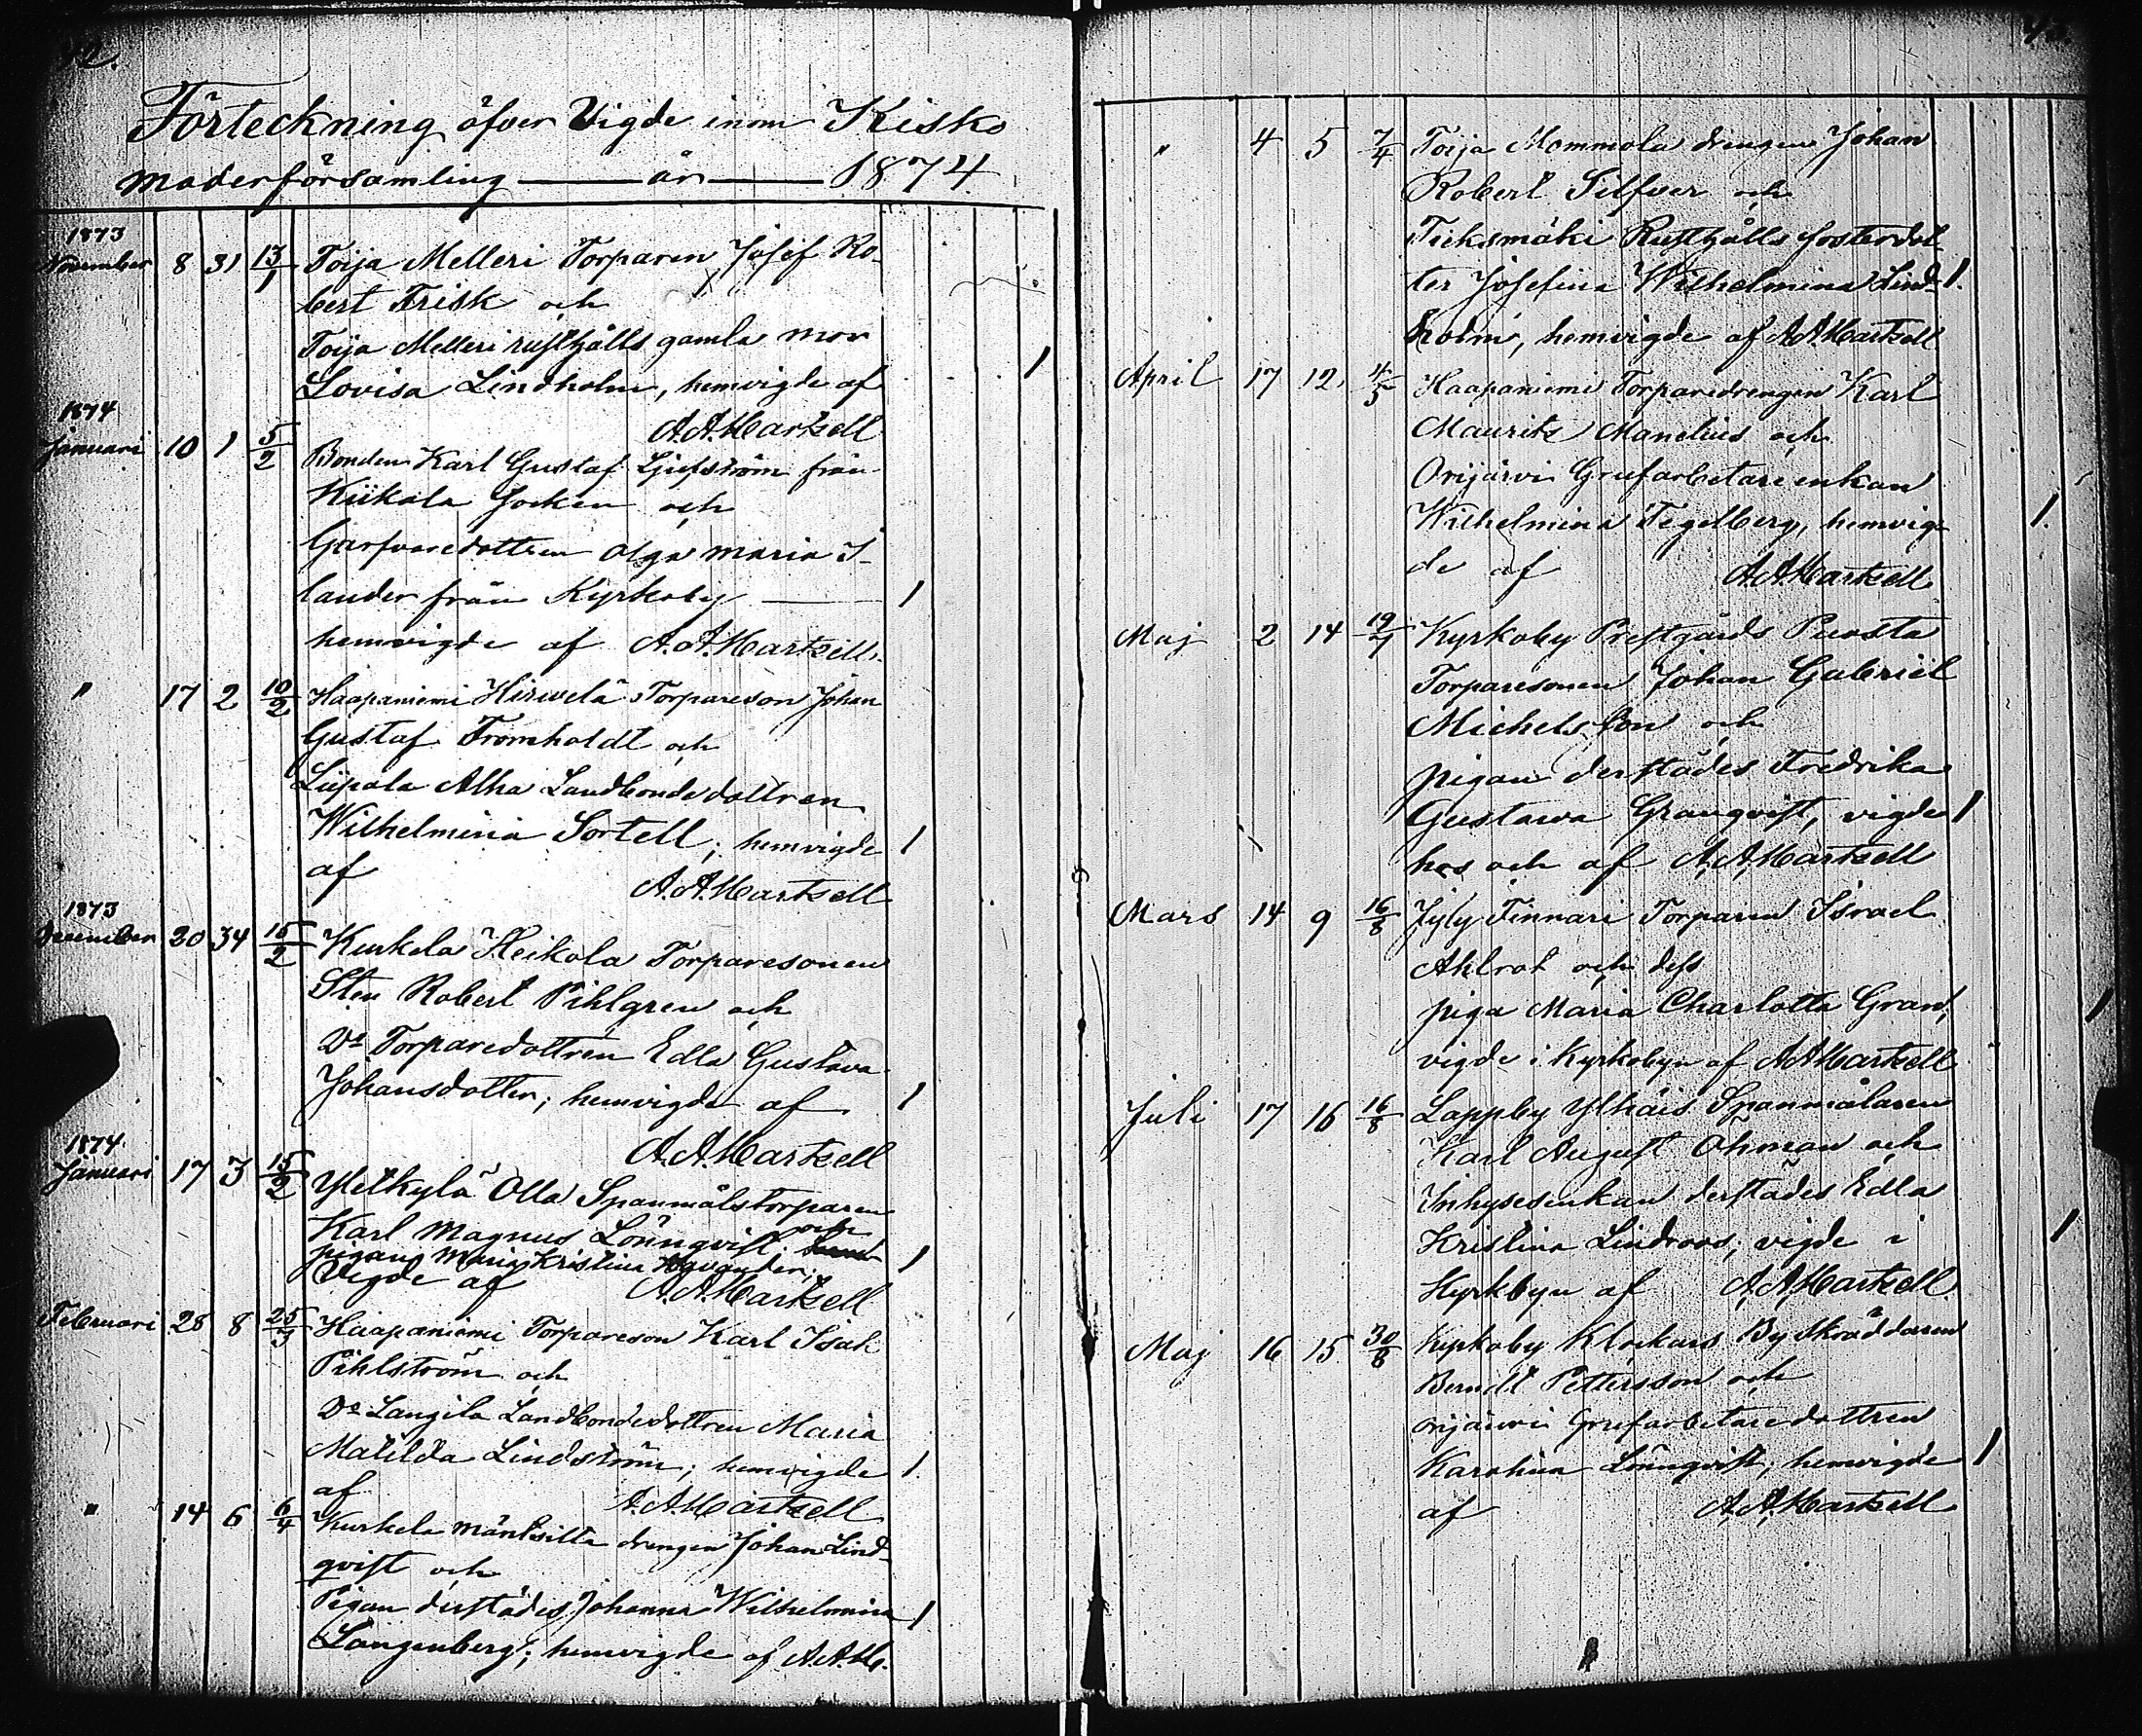 42.
Förteckning öfver Vigde inom Kisko
moderförsamling — år — 1874.
1873
November 8 31 13/1 Toija Melleri Torparen Josef Ro-
bert Frisk och
Toija Melleri rusthålls gamla mor
Lovisa Lindholm, hemvigde af 1
A.A.Martsell
1874
Januari 10 1 5/2 Bonden Karl Gustaf från
Kiikala Socken och
Garfvaredottren Olga Maria S-
lander från Kyrkoby — 1
hemvigde af A.A.Martsell.
" 17 2 10/2 Haapaniemi Hirwelä Torpareson Johan
Gustaf Fromholdt och
Liipola Alha Landbondedottren
Wilhelmina Sortell; hemvigde 1
af A.A.Martsell
1873
December 20 34 15/2 Kurkela Heikola Torparesonen
Sten Robert Pihlgren och
Ds Torparedottren Edla Gustava
Johansdotter; hemvigde af 1
A.A.Martsell
1874
Januari 17 3 15/2 Olla Spanmålstorparen
Karl Magnus Lönnqvist; och
pigang Maria Kristina 1
Vigde af A.A.Martsell
Februari 28 8 25/3 Haapaniemi Torpareson Karl Isak
Pihlström och
Ds Langila Landbondedottren Maria
Matilda Lindström; hemvigde 1.
af A.A.Martsell
" 14 6 6/4 Kurkela Mäntsilta drengen Johan Lind-
qvist och
Pigan derstädes Johanna Wilhelmina 1
Langenberg; hemvigde af A.A.M.
43.
" 4 5 7/4 Toija Mommola drengen Johan
Robert Silfver och
Rusthålls fosterdot-
ter Josefina Wilhelmina Lind- 1.
holm, hemvigde af A.A.Martsell
April 17 12. 4/5 Haapaniemi Torparedrengen Karl
Maurits Manelius och
Orijärvi Grufarbetareenkan
Wilhelmina Tegelberg, hemvig- 1.
de af A.A.Martsell
Maj 2 14 19/7 Kyrkoby Prestgårds Puosta
Torparesonen Johan Gabriel
Michelsson och
pigan derstädes Fredrika
Gustawa Granqvist, vigde 1
hos och af A.A.Martsell
Mars 14 9 16/8 Jyly Finnari Torparen Israel
Ahlrot och dess
piga Maria Charlotta Gran, 1
vigde i Kyrkobyn af A.A.Martsell
Juli 17 16 16/8 Lappby Ylhäis Spanmålaren
Karl August Öhman och
Inhysesenkan derstädes Edla
Kristina Lindroos; vigde i 1
Kyrkbyn af A.A.Martsell.
Maj 16 15 30/8 Kyrkoby Klockars Byskräddaren
Berndt Pettersson och
orijärvi Grufarbetaredottren
Karolina Lönnqvist; hemvigde 1
af A.A.Martsell